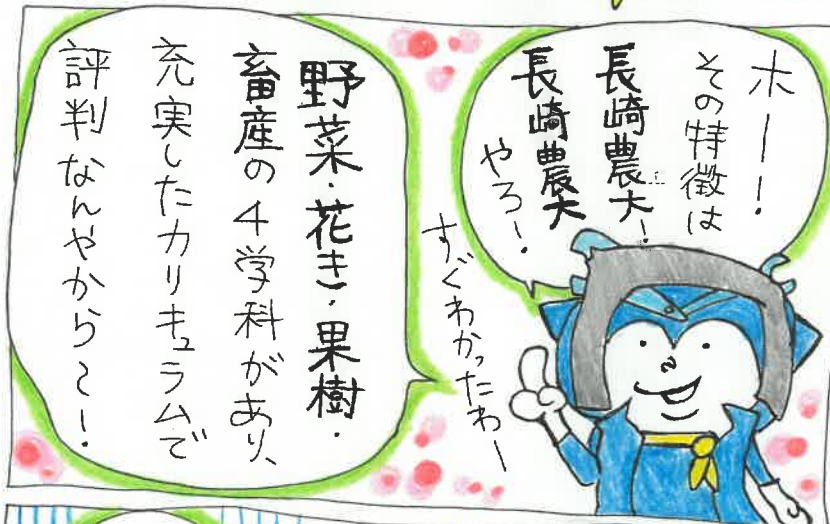 ホー！
その特徴は
長崎農大！
長崎農大
やろ！
すぐわかったわー
野菜・花き・果樹・
畜産の４学科があり、
充実したカリキュラムで
評判なんやから〜！